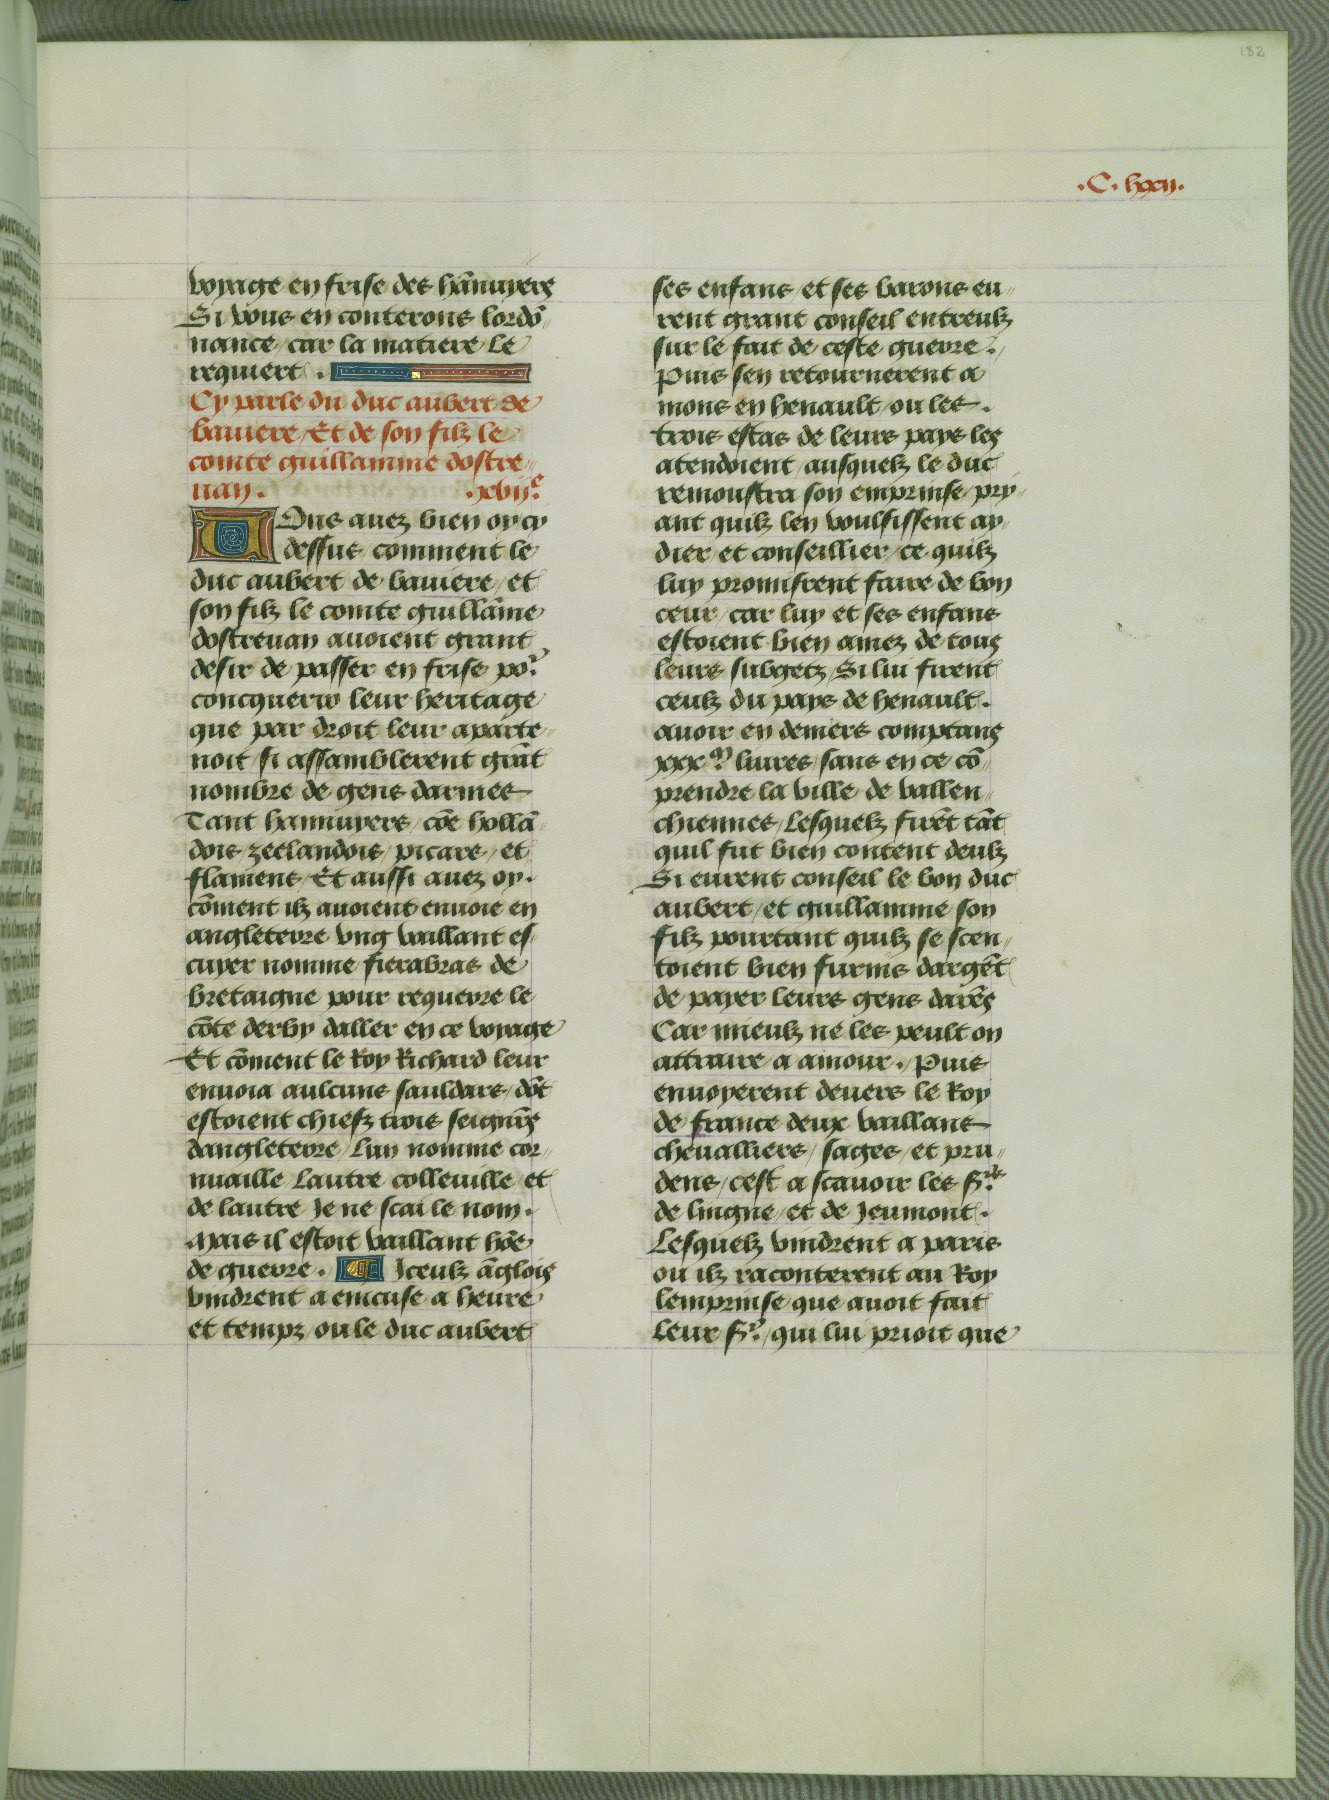 182
.C. lxxij.
voyage en frise des hānuyers
Si vous en conterons lordō
nance / car la matiere le
requiert .
Cy parle du duc aubert de
baviere / Et de son filz le
comte guillamme dostre
van . .xcvijᵉ.
Vous avez bien oy cy
dessus / comment le
duc aubert de baviere / et
son filz le comte guillāme
dostrevan avoient grant
desir de passer en frise poʳ
concquerir leur heritage
que par droit leur aparte
noit / si assamblerent grāt
nombre de gens darmes
Tant hannuyers / cōe hollā
dois / zeelandois / picars / et
flamens / Et aussi avez oy .
cōment ilz avoient envoie en
angleterre ung vaillant es
cuyer nomme fierabras de
bretaigne pour requerre le
cōte derby daller en ce voyage
Et cōment le Roy Richard leur
envoia aulcuns sauldars / dōt
estoient chiefz trois seignᵣ̄s
dangleterre / Lun nomme cor
nuaille / Lautre colleville / et
de lautre Je ne scai le nom .
Mais il estoit vaillant hōe
de guerre . Iceulz āglois
vindrent a encuse a heure
et tempz / ou le duc aubert
ses enfans / et ses barons eu
rent grant conseil entreulz
sur le fait de ceste guerre .
Puis sen retournerent a
mons en henault / ou les .
trois estas de leurs pays les
atendoient / ausquelz le duc
remoustra son emprinse / pry
ant quilz len voulsissent ay
dier et conseillier / ce quilz
luy promisrent faire de bon
ceur / car luy et ses enfans
estoient bien amez de tous
leurs subgetz / Si lui firent
ceulz du pays de henault .
avoir en deniers comptans
xxxᵐ livres / sans en ce cō
prendre la ville de vallen
chiennes / Lesquelz firēt tāt
quil fut bien content deulz
Si eurent conseil le bon duc
aubert / et guillamme son
filz pourtant quilz se scen
toient bien furnis dargēt
de payer leurs gens darēs
Car mieulz ne les peult on
attraire a amour . Puis
envoyerent devers le Roy
de france deux vaillans
chevalliers / sages / et pru
dens / cest a scavoir les Sʳˢ
de lingne / et de Jeumont .
Lesquelz vindrent a paris
ou ilz raconterent au Roy
lemprinse que avoit fait
Leur Sʳ / qui lui prioit que